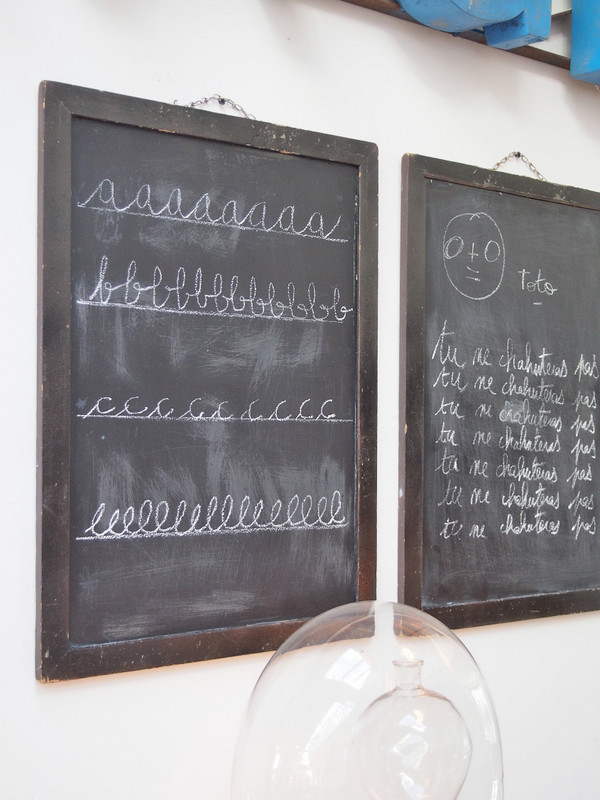 aaaaaaaa
bbbbbbbbbbbb
c c c c c c c c c
0 + 0
=
Toto
tu ne chahuteras pas
tu ne chahuteras pas
tu ne chahuteras pas
tu ne chahuteras pas
tu ne chahuteras pas
tu ne chahuteras pas
tu ne chahuteras pas